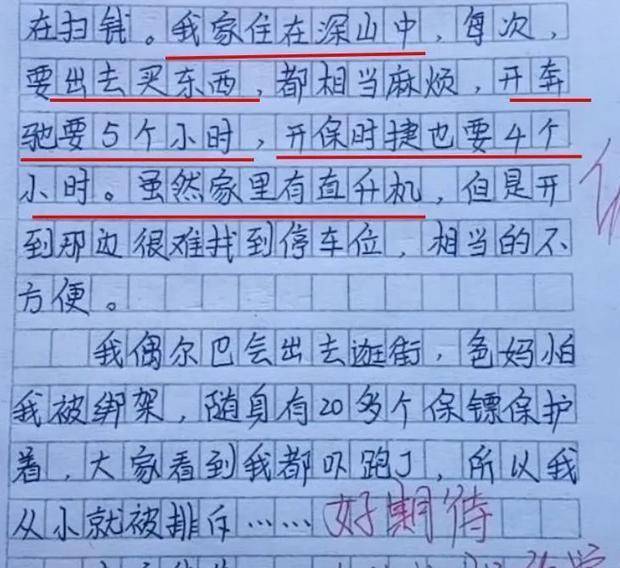 在扫钱。我家住在深山中，每次，
要出去买东西，都相当麻烦，开奔
驰要5个小时，开保时捷也要4个
小时。虽然家里有直升机，但是开
到那边很难找到停车位，相当的不
方便。
我偶尔巴会出去逛街，爸妈怕
我被绑架，随身有20多个保镖保护
着，大家看到我都吓跑了，所以我
从小就被排斥……好期待